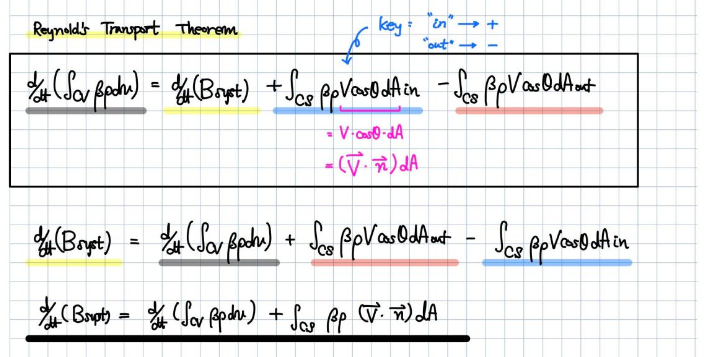 Reynold's Transport Theorem
key: "in" → +
"out" → -
d/dt (∫cv βρdv) = d/dt (Bsyst) + ∫cs βρVcosθdA in - ∫cs βρVcosθdA out
= V·cosθ·dA
= (V⃗ · n⃗) dA
d/dt (Bsyst) = d/dt (∫cv βρdv) + ∫cs βρVcosθdA out - ∫cs βρVcosθdA in
d/dt (Bsyst) = d/dt (∫cv βρdv) + ∫cs βρ (V⃗ · n⃗) dA